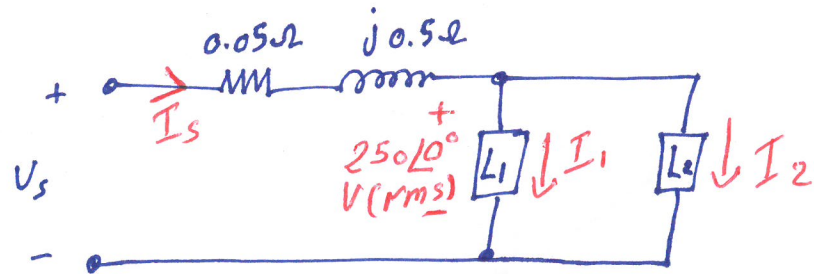 0.05Ω j0.5Ω
+
Is
+
250∠0°
V(rms)
L1
I1
L2
I2
Vs
-